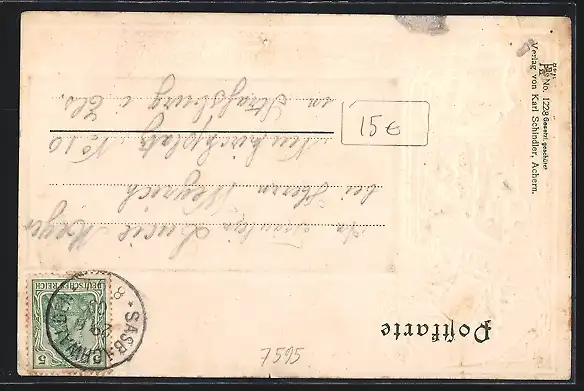 Postkarte
DEUTSCHES REICH
5
SASBACHWALDEN
An Fräulein Lucie Meyer
bei Herrn Weyrich
Neukirchplatz No 10
in Strassburg i. Els.
15€
7595
No. 1228 Gesetzl. geschützt
Verlag von Karl Schindler, Achern.